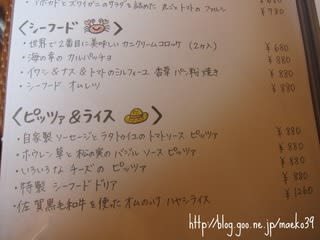 アボカドとズワイガニのサラダを詰めた 丸ごとトマトのファルシ
¥780
<シーフード>
・世界で2番目に美味しい カニクリームコロッケ (2ヶ入) ¥680
・海の幸の カルパッチョ ¥880
・イワシ&ナス&トマトのミルフィーユ 香草パン粉焼き ¥880
・シーフード オムレツ ¥880
<ピッツァ&ライス>
・自家製 ソーセージと ラタトゥイユの トマトソース ピッツァ ¥880
・ホウレン草と 松の実の バジルソース ピッツァ ¥880
・いろいろな チーズの ピッツァ ¥880
・特製 シーフード ドリア ¥880
・佐賀黒毛和牛を使った オムのっけ ハヤシライス ¥1260
http://blog.goo.ne.jp/maeko39